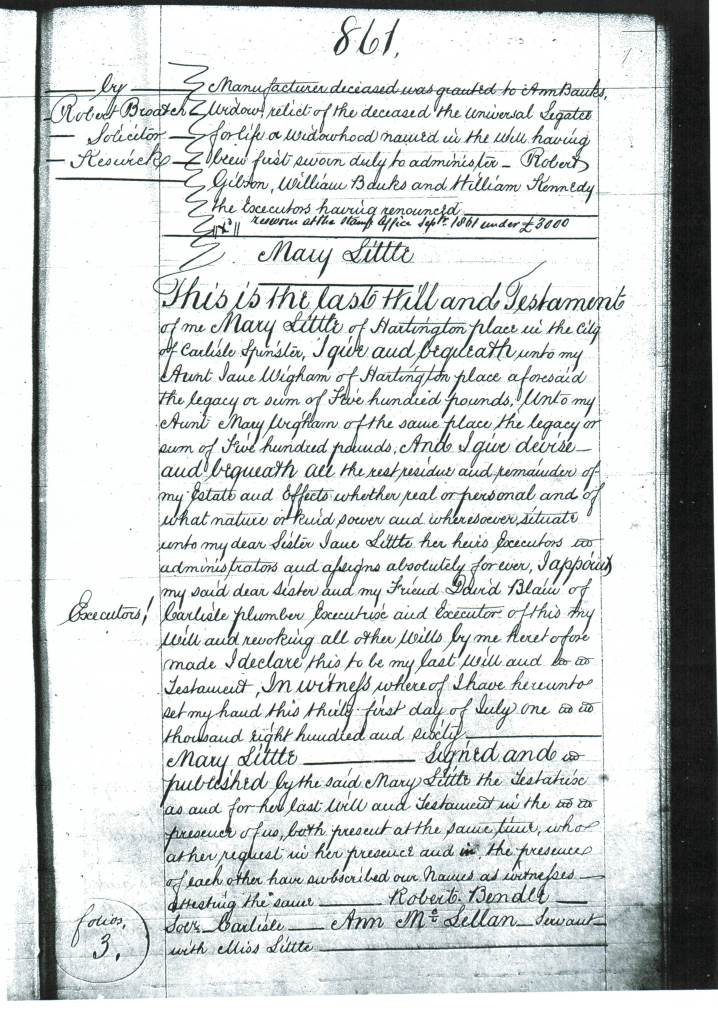 861.
by
Robert Broatch
Solicitor
Keswick
Manufacturer deceased was granted to Ann Banks,
Widow relict of the deceased the Universal Legatee
for life or Widowhood named in the Will having
been first sworn duly to administer – Robert
Gibson, William Banks and William Kennedy
the Executors having renounced
resworn at the Stamp Office Septr. 1861 under £3000
Mary Little
This is the last Will and Testament
of me Mary Little of Hartington place in the City
of Carlisle Spinster, I give and bequeath unto my
Aunt Jane Wigham of Hartington place aforesaid
the legacy or sum of Five hundred pounds, Unto my
Aunt Mary Wigham of the same place the legacy or
sum of Five hundred pounds, And I give devise
and bequeath all the rest residue and remainder of
my Estate and Effects whether real or personal and of
what nature or kind soever and wheresoever situate
unto my dear Sister Jane Little her heirs Executors
administrators and assigns absolutely for ever, I appoint
my said dear Sister and my Friend David Blair of
Executors!
Carlisle plumber Executrix and Executor of this my
Will and revoking all other Wills by me heretofore
made I declare this to be my last Will and
Testament, In witness whereof I have hereunto
set my hand this thirty first day of July one
thousand eight hundred and sixty
Mary Little – Signed and
published by the said Mary Little the Testatrix
as and for her last Will and Testament in the
presence of us, both present at the same time, who
at her request in her presence and in the presence
of each other have subscribed our Names as witnesses
attesting the same – Robert Bendle
Solr. Carlisle – Ann McLellan – Servant
with Miss Little
folios.
3.